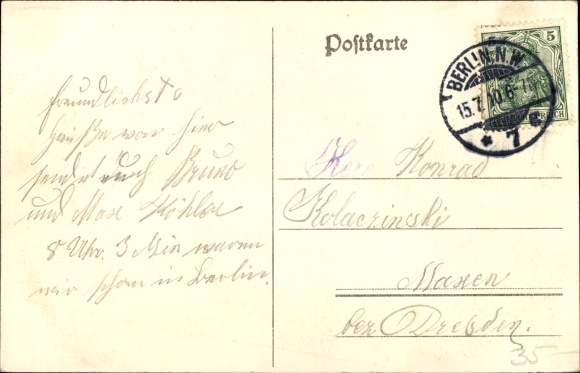 Postkarte
5
BERLIN N.W.
15.7.10.6-7N
* 7 e
REICH
Freundlichste
Grüße von hier
sendet euch Bruno
und Max Köhler
8 Uhr. 3 Min waren
wir schon in Berlin.
Herr Konrad
Kolaczinski
Maxen
bez Dresden.
35-